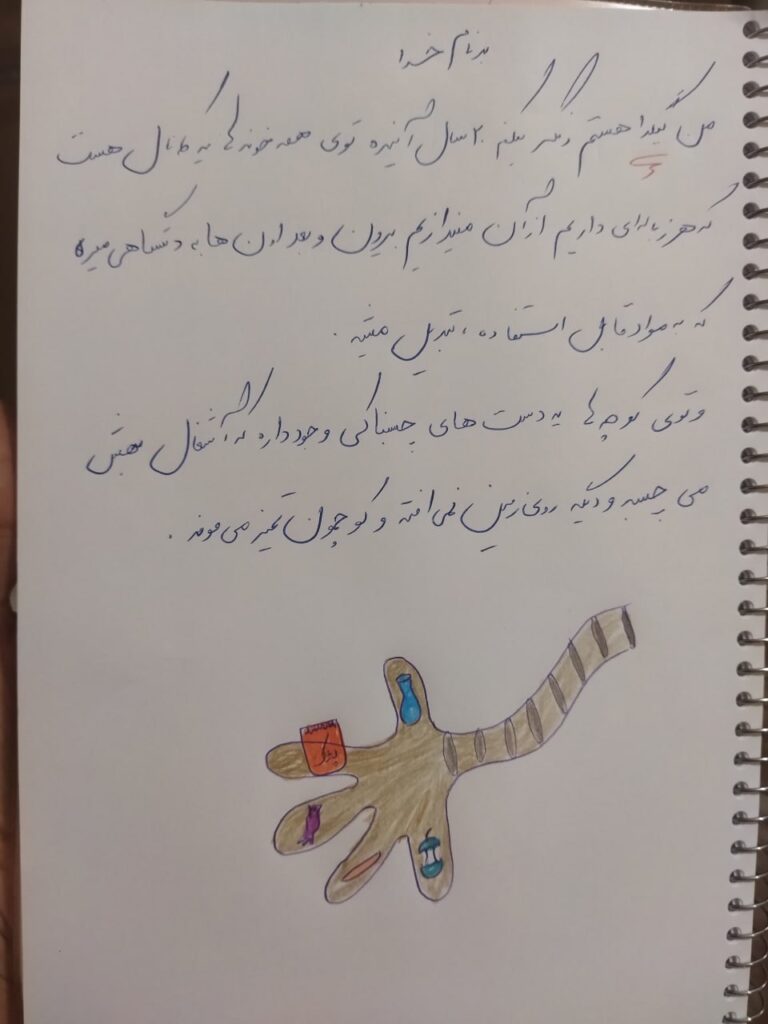 به نام خدا
من گیلدا هستم فکر میکنم ۲۰ سال آینده توی همه خونه ها یه کانال هست
که هر زباله‌ای داریم از آن میندازیم بیرون و بعد اون ها به دستگاهی میره
که به مواد قابل استفاده ، تبدیل میشه .
و توی کوچه ها یه دست های چسبناکی وجود داره که آشغال بهش
می چسبه و دیگه روی زمین نمی افته و کوچمون تمیز می مونه .